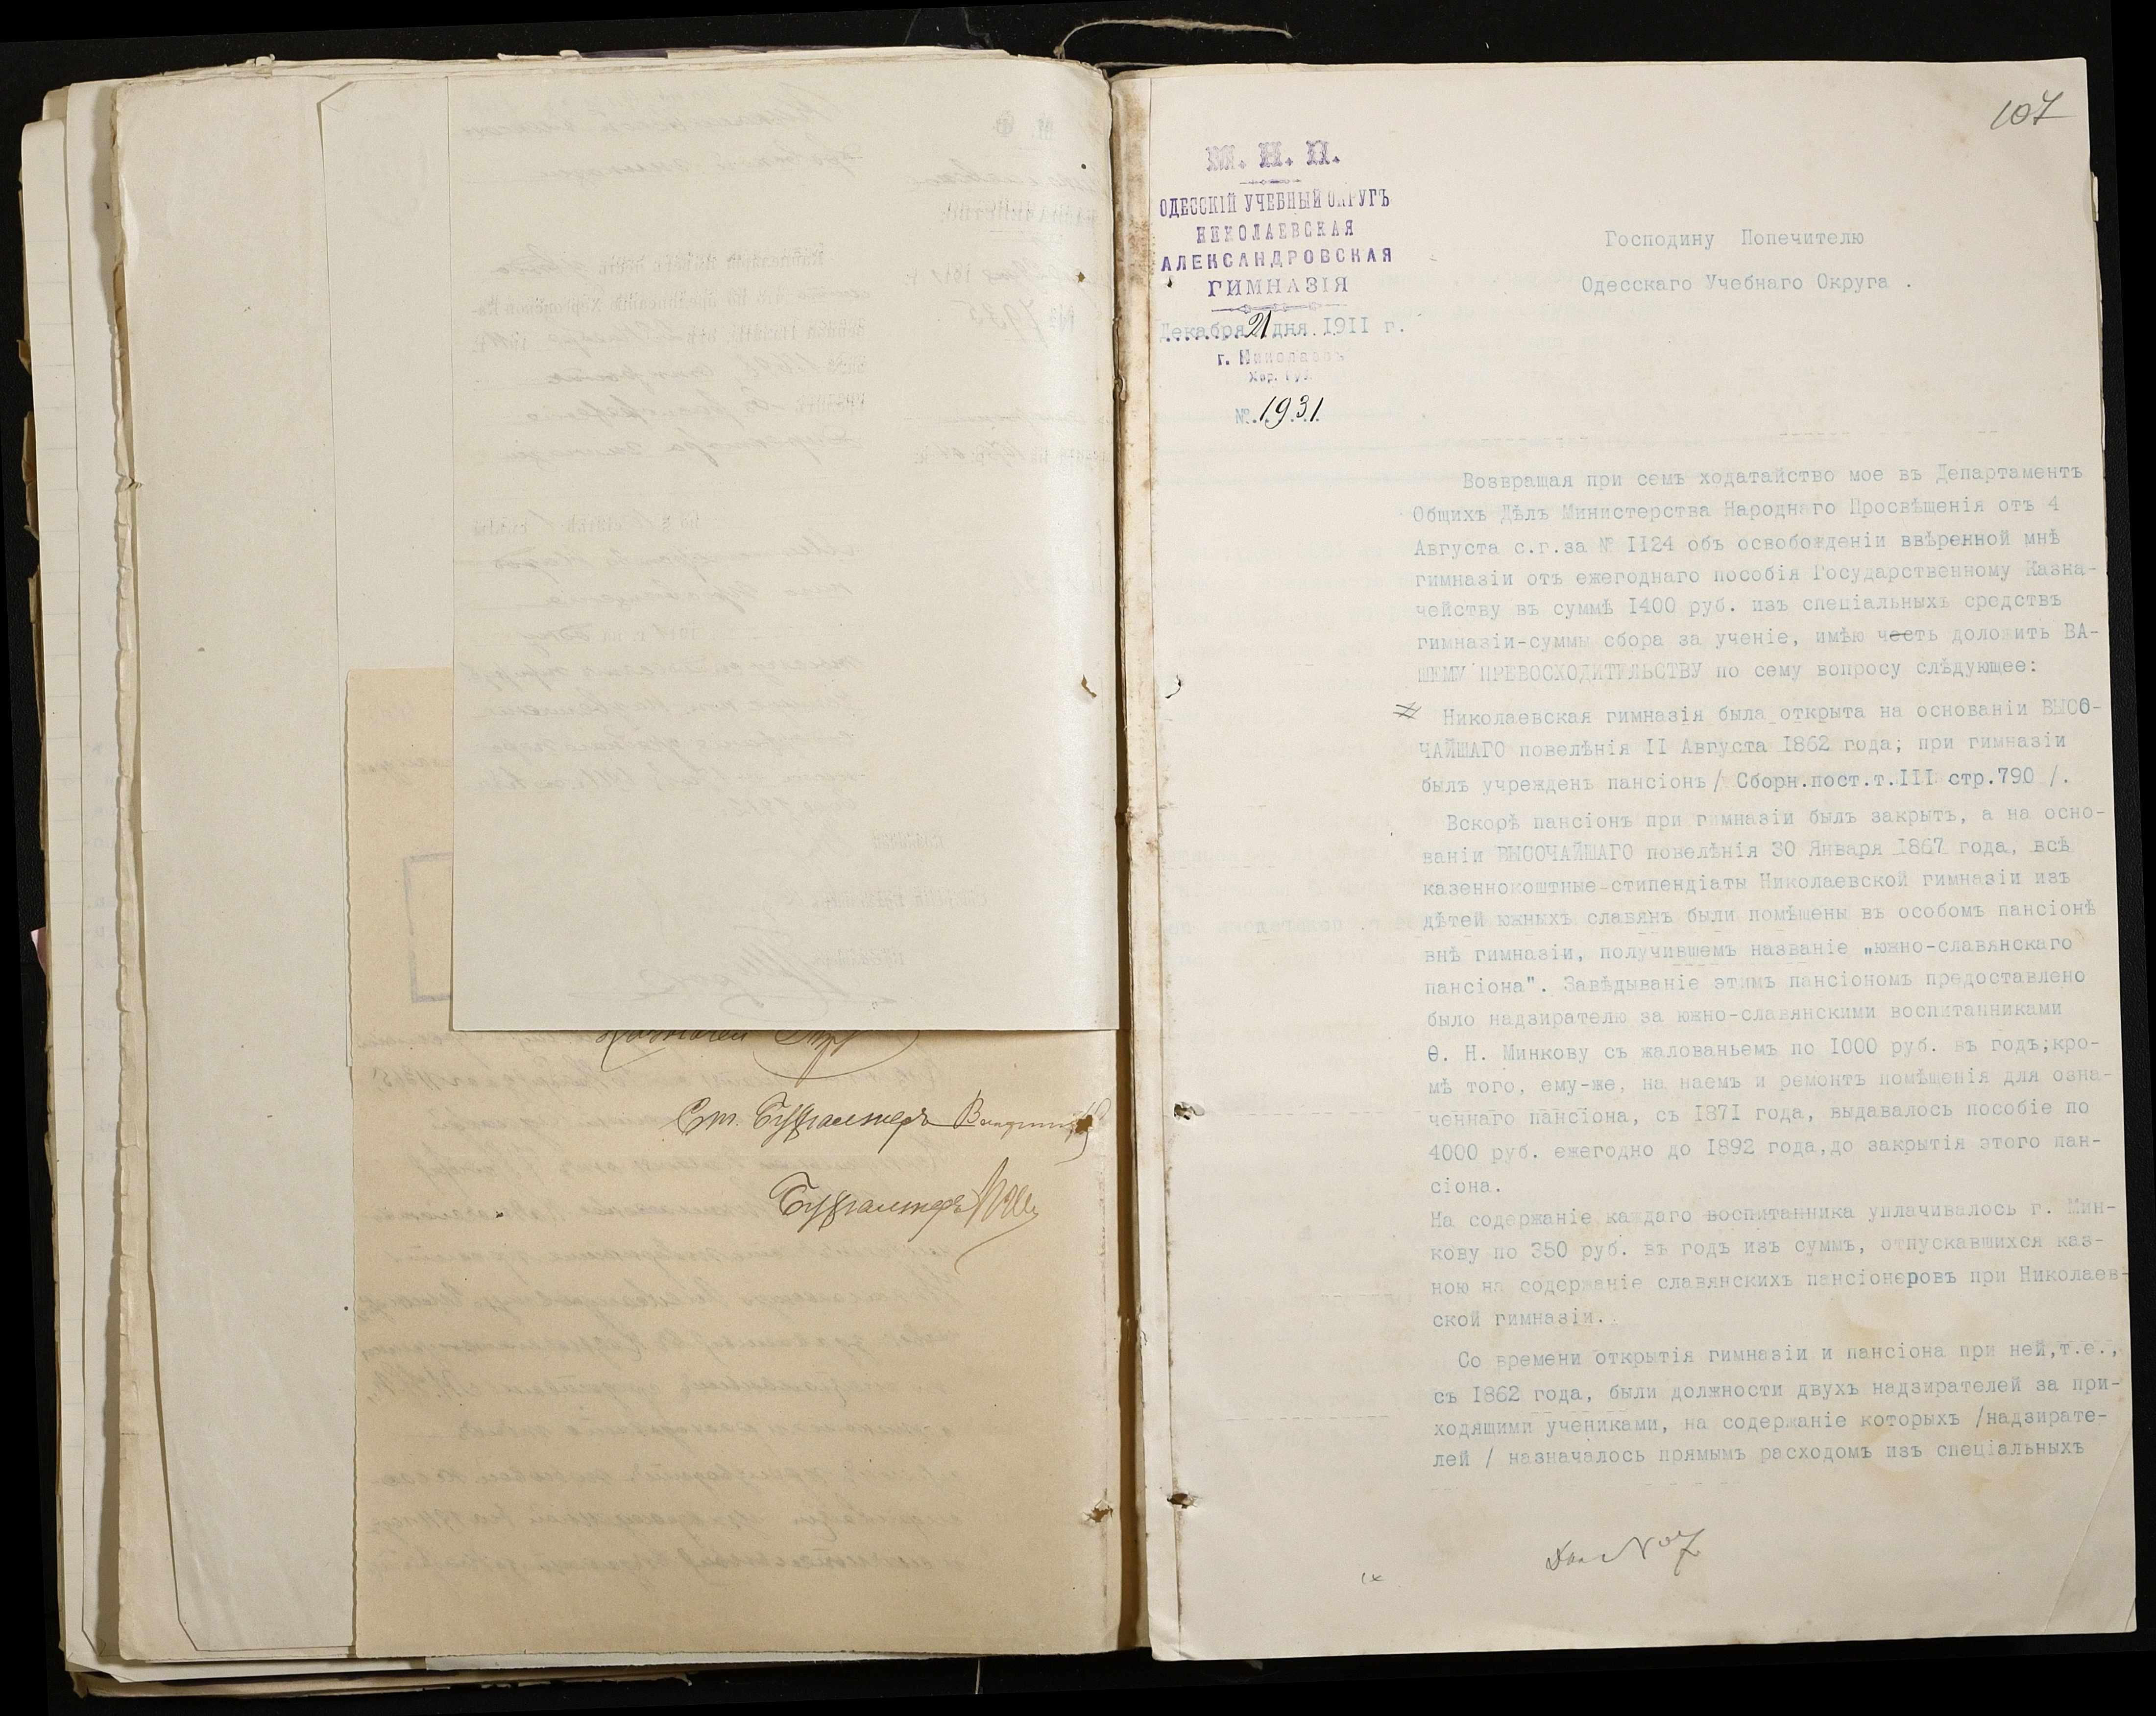 Ст. Бухгалтеръ
Бухгалтеръ
107
М. Н. П.
ОДЕССКІЙ УЧЕБНЫЙ ОКРУГЪ
НИКОЛАЕВСКАЯ
АЛЕКСАНДРОВСКАЯ
ГИМНАЗІЯ
Декабря 21 дня 1911 г.
г. Николаевъ
Хер. губ.
№ 1931.
Господину Попечителю
Одесскаго Учебнаго Округа .
Возвращая при семъ ходатайство мое въ Департаментъ
Общихъ Дѣлъ Министерства Народнаго Просвѣщенія отъ 4
Августа с.г.за № II24 объ освобожденіи ввѣренной мнѣ
гимназіи отъ ежегоднаго пособія Государственному Казна-
чейству въ суммѣ I400 руб. изъ спеціальныхъ средствъ
гимназіи-суммы сбора за ученіе, имѣю честь доложить ВА-
ШЕМУ ПРЕВОСХОДИТЕЛЬСТВУ по сему вопросу слѣдующее:
Николаевская гимназія была открыта на основаніи ВЫСО-
ЧАЙШАГО повелѣнія II Августа I862 года; при гимназіи
былъ учрежденъ пансіонъ / Сборн.пост.т.III стр.790 /.
Вскорѣ пансіонъ при гимназіи былъ закрытъ, а на осно-
ваніи ВЫСОЧАЙШАГО повелѣнія 30 Января I867 года, всѣ
казеннокоштные-стипендіаты Николаевской гимназіи изъ
дѣтей южныхъ славянъ были помѣщены въ особомъ пансіонѣ
внѣ гимназіи, получившемъ названіе „южно-славянскаго
пансіона". Завѣдываніе этимъ пансіономъ предоставлено
было надзирателю за южно-славянскими воспитанниками
Ѳ. Н. Минкову съ жалованьемъ по I000 руб. въ годъ;кро-
мѣ того, ему-же, на наемъ и ремонтъ помѣщенія для озна-
ченнаго пансіона, съ I87I года, выдавалось пособіе по
4000 руб. ежегодно до I892 года,до закрытія этого пан-
сіона.
На содержаніе каждаго воспитанника уплачивалось г. Мин-
кову по 350 руб. въ годъ изъ суммъ, отпускавшихся каз-
ною на содержаніе славянскихъ пансіонеровъ при Николаев-
ской гимназіи.
Со времени открытія гимназіи и пансіона при ней,т.е.,
съ I862 года, были должности двухъ надзирателей за при-
ходящими учениками, на содержаніе которыхъ /надзирате-
лей / назначалось прямымъ расходомъ изъ спеціальныхъ